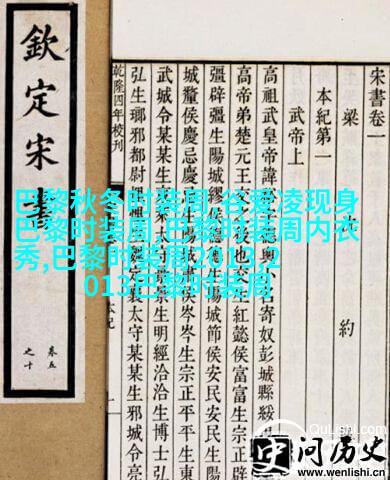 欽定宋書
卷五
之十
宋書卷一
梁 約
本紀第一
武帝上
高祖武皇帝諱 小名寄奴彭城縣綏
高帝弟楚元王交 後也交生紅懿侯富富生
彊辟彊生陽城繆侯 生陽城節侯安民安民生陽
城釐侯慶忌慶忌 侯岑岑生宗正平平生東
武城令某某生東 太守 景生明經洽洽生博士弘
弘生瑯邪都尉 定襄太守某某生邪城令亮
乾隆四年校刊
本紀
一
巴黎秋冬时装周,谷爱凌现身
巴黎时装周,巴黎时装周内衣
秀,巴黎时装周201
013巴黎时装周
QuLishi.com
史问历史
www.wenlishi.cn